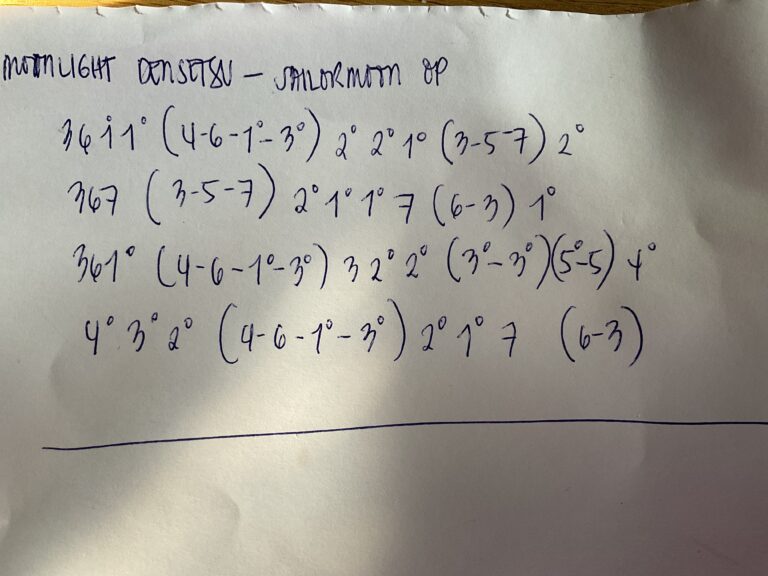 MOONLIGHT DENSETSU – SAILORMOON OP
36 i 1° (4-6-1°-3°) 2° 2° 1° (3-5-7) 2°
367 (3-5-7) 2° 1° 1° 7 (6-3) 1°
361° (4-6-1°-3°) 3 2° 2° (3°-3°)(5°-5) 4°
4° 3° 2° (4-6-1°-3°) 2° 1° 7 (6-3)